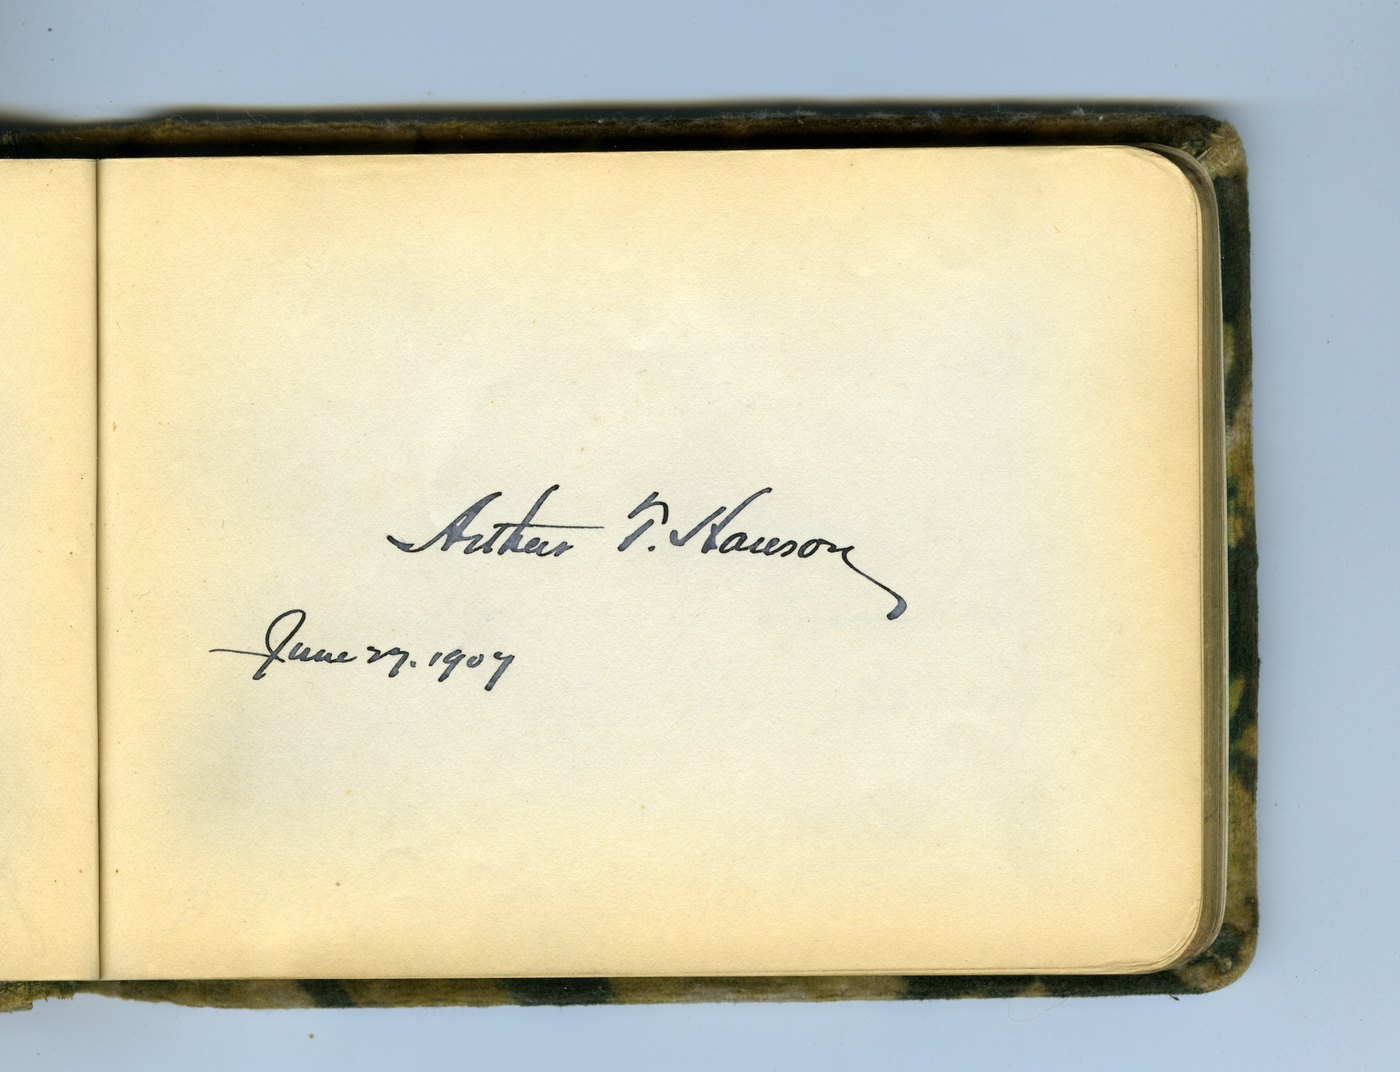 Arthur T.
June 27. 1907